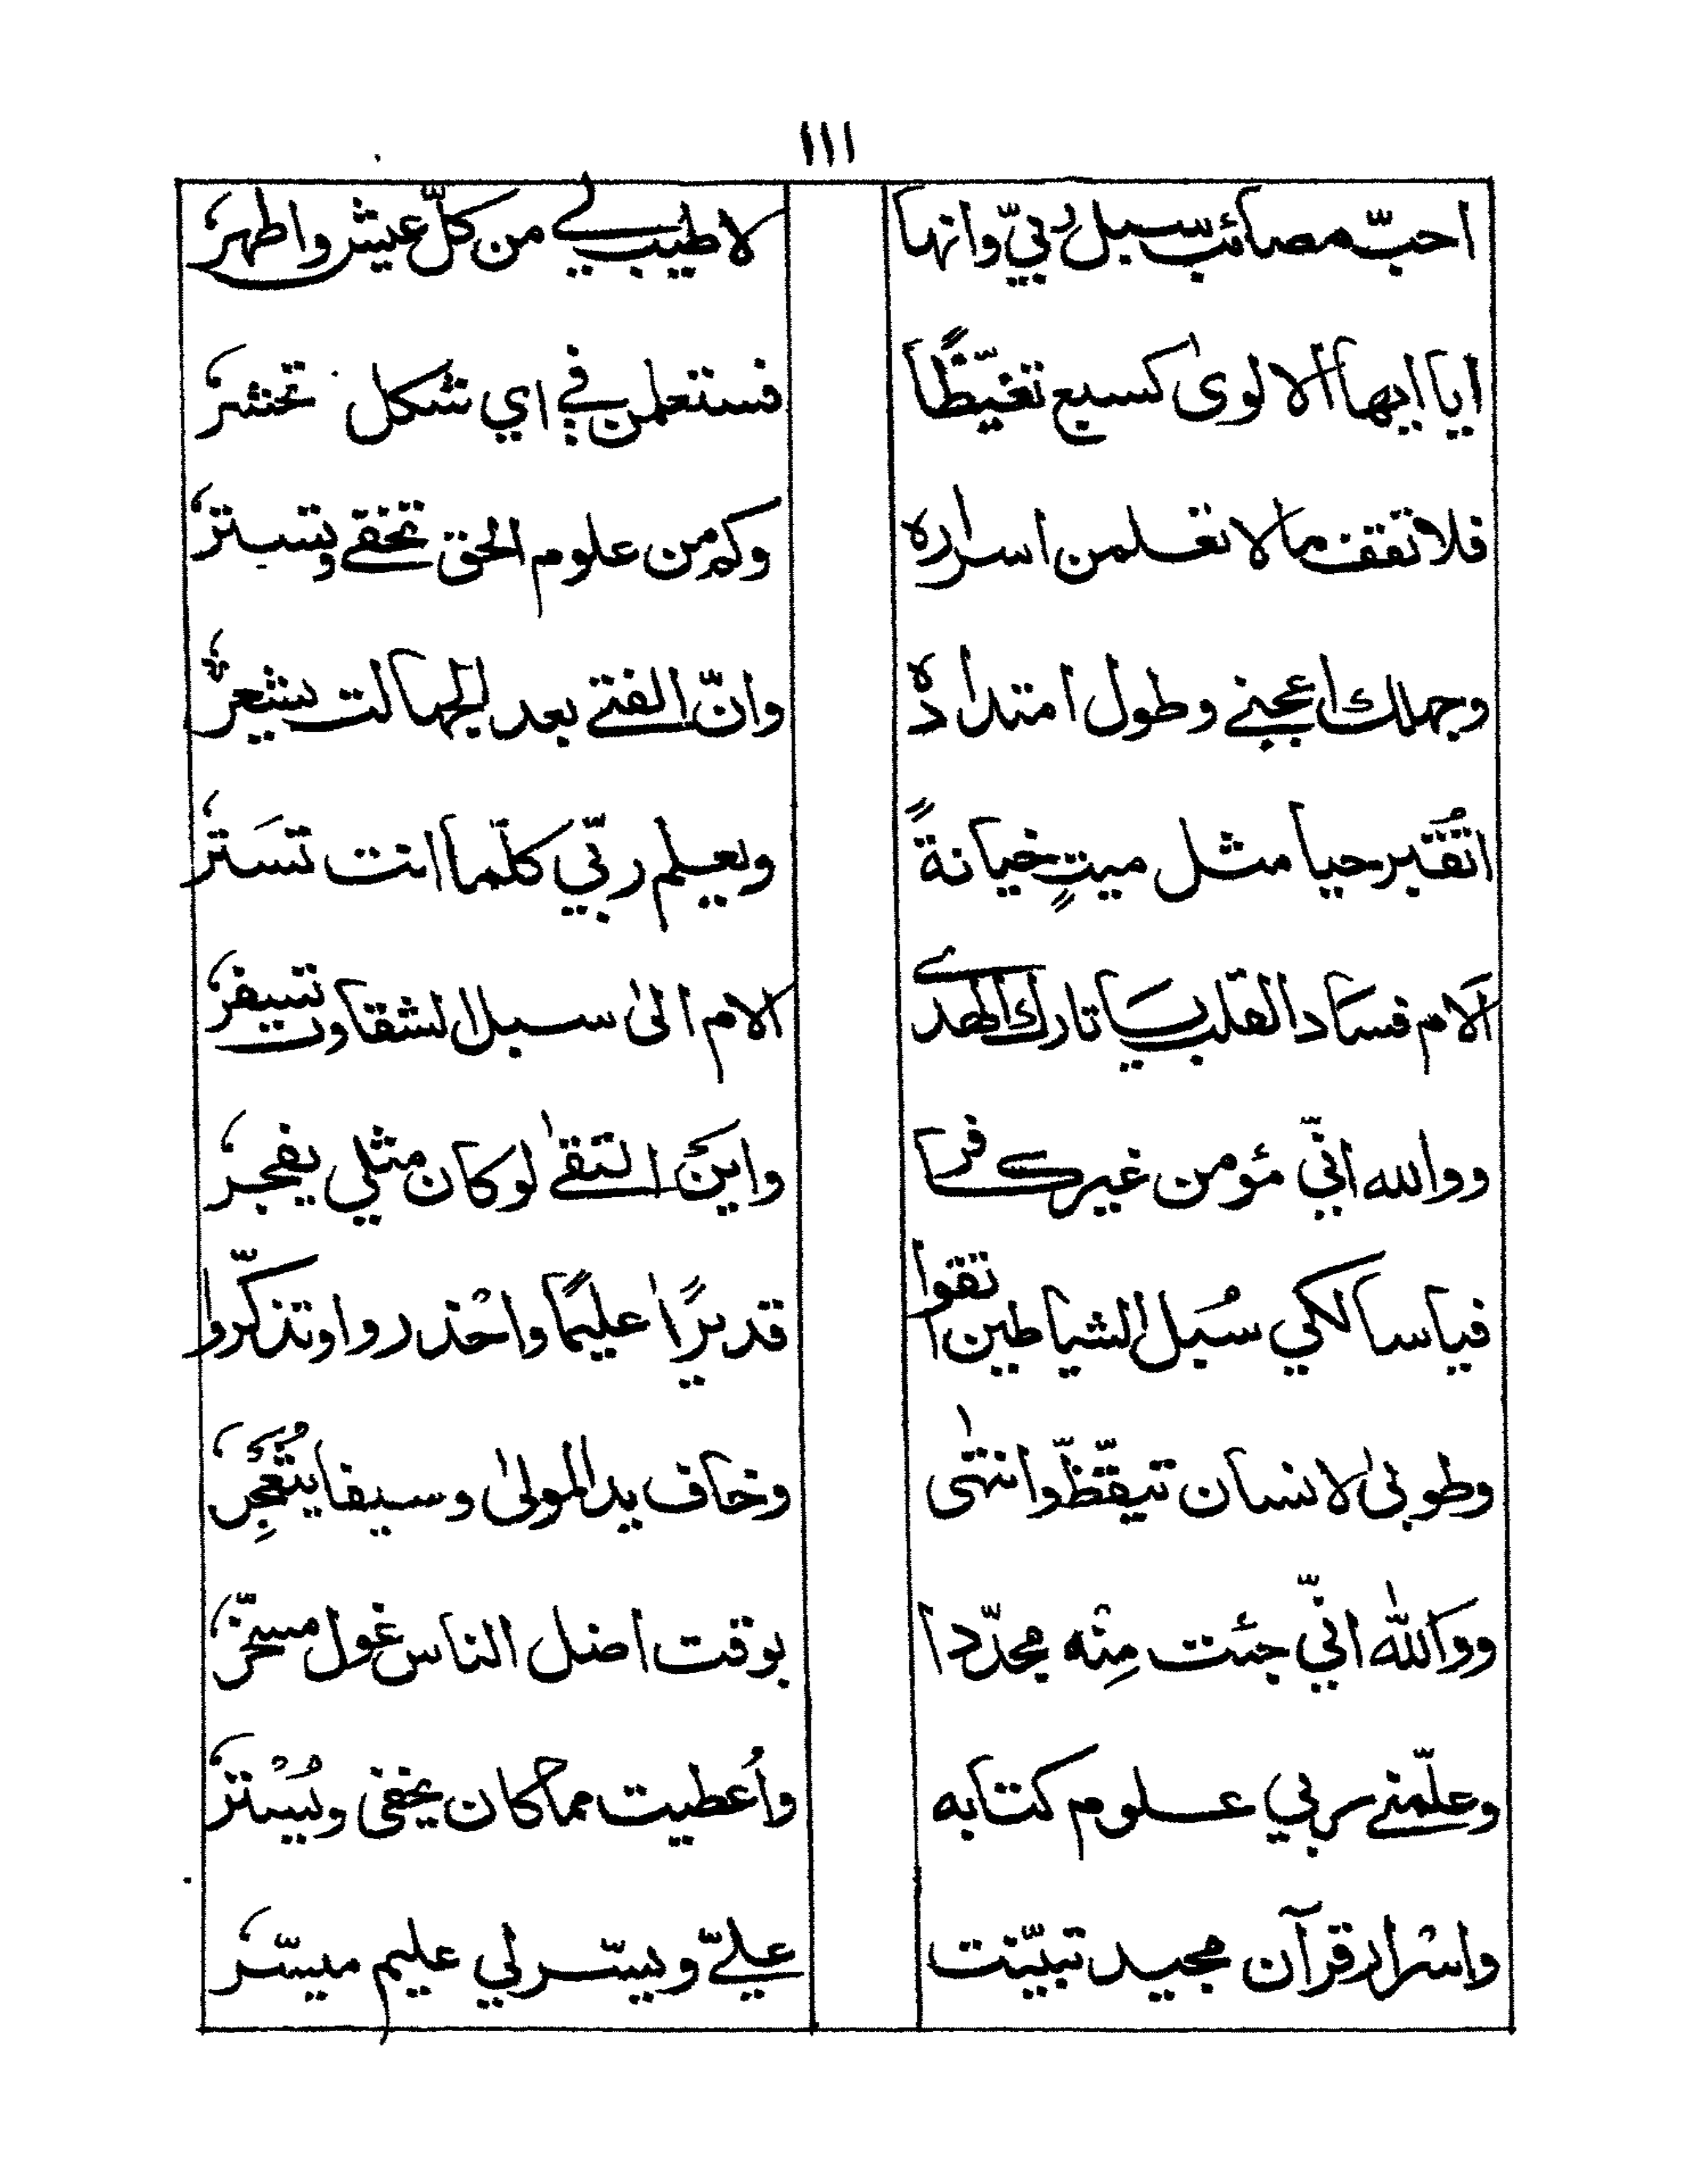 ١١١
احبّ مصائب سبل ربّي وانها لاطيب لي من كلّ عيش واطهر
ايا ايها الالوى كسبع تغيّظًا فستعلمن في اي شكل تحشر
فلا تقف ما لا تعلمن اسراره وكم من علوم الحق تخفى وتستر
وجهلك اعجبني وطول امتداده وانّ الفتى بعد الجهالت يشعر
اتُقْبر حيا مثل ميتٍ خيانةً ويعلم ربّي كلّما انت تَستر
الام فساد القلب يا تارك الهدى الام الى سبل الشقاوت تسفر
ووالله انّي مؤمن غير كافر واين التقى لو كان مثلي يفجر
فيا سالكي سُبل الشياطين اتقوا قديرًا عليمًا واحْذروا وتذكّروا
وطوبى لانسان تيقّظ وانتهى وخاف يد المولى وسيفا يثعجر
ووالله انّي جئت مِنْه مجدّدا بوقت اضل الناس غول مسخّر
وعلّمني ربي علوم كتابه واُعطيت مما كان يخفى ويُسْتر
واسْرار قرآن مجيد تبيّنت عليّ ويسّر لي عليم ميسّر